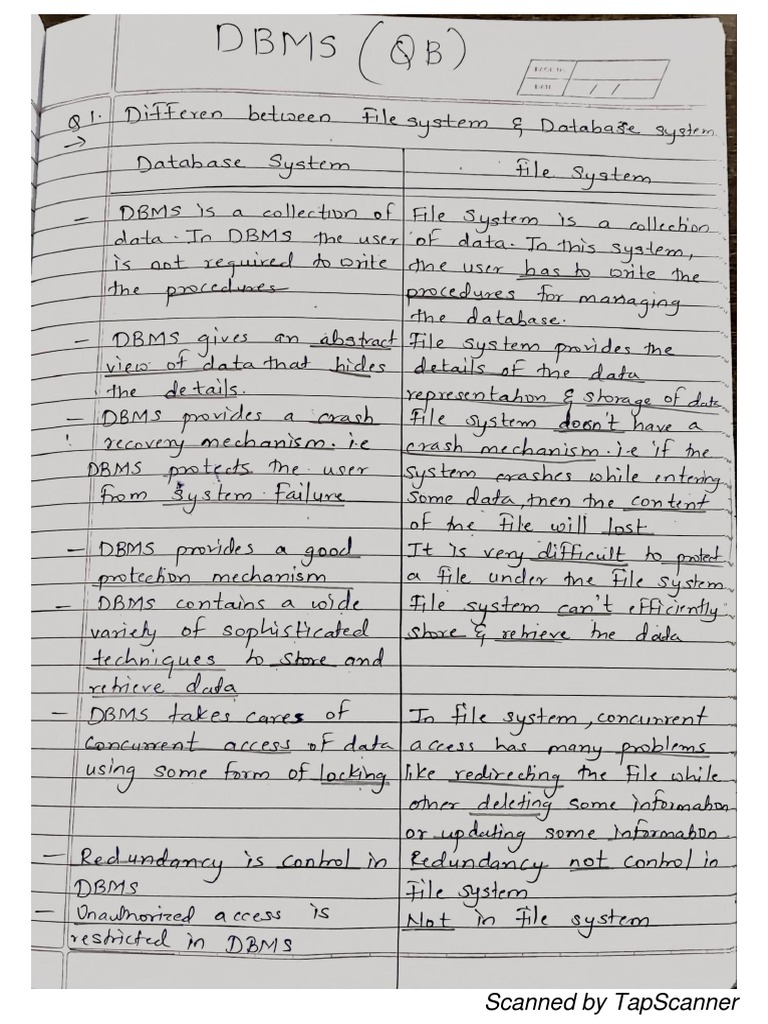 DBMS (QB)
Q1. Differen between File system & Database system
→
Database System
DBMS is a collection of
data. In DBMS the user
is not required to write
the procedures
- DBMS gives an abstract
view of data that hides
the details.
- DBMS provides a crash
recovery mechanism. i.e
DBMS protects the user
from system failure
- DBMS provides a good
protection mechanism
- DBMS contains a wide
variety of sophisticated
techniques to store and
retrieve data
- DBMS takes cares of
concurrent access of data
using some form of locking
- Redundancy is control in
DBMS
- Unauthorized access is
restricted in DBMS
File System
File System is a collection
of data. In this system,
the user has to write the
procedures for managing
the database.
File system provides the
details of the data
representation & storage of data
File system doesn't have a
crash mechanism. i.e if the
system crashes while entering
some data, then the content
of the file will lost
It is very difficult to protect
a file under the file system
File system can't efficiently
store & retrieve the data
In file system, concurrent
access has many problems
like redirecting the file while
other deleting some information
or updating some information
Redundancy not control in
file system
Not in file system
Scanned by TapScanner